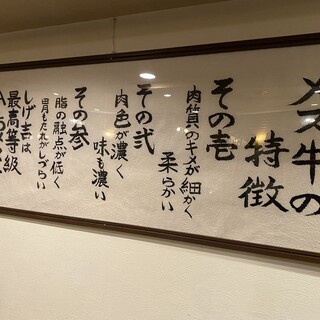 メス牛の
特徴
その壱
肉質のキメが細かく
柔らかい
その弐
肉色が濃く
味も濃い
その参
脂の融点が低く
胃もたれがしづらい
しげ吉は
最高等級